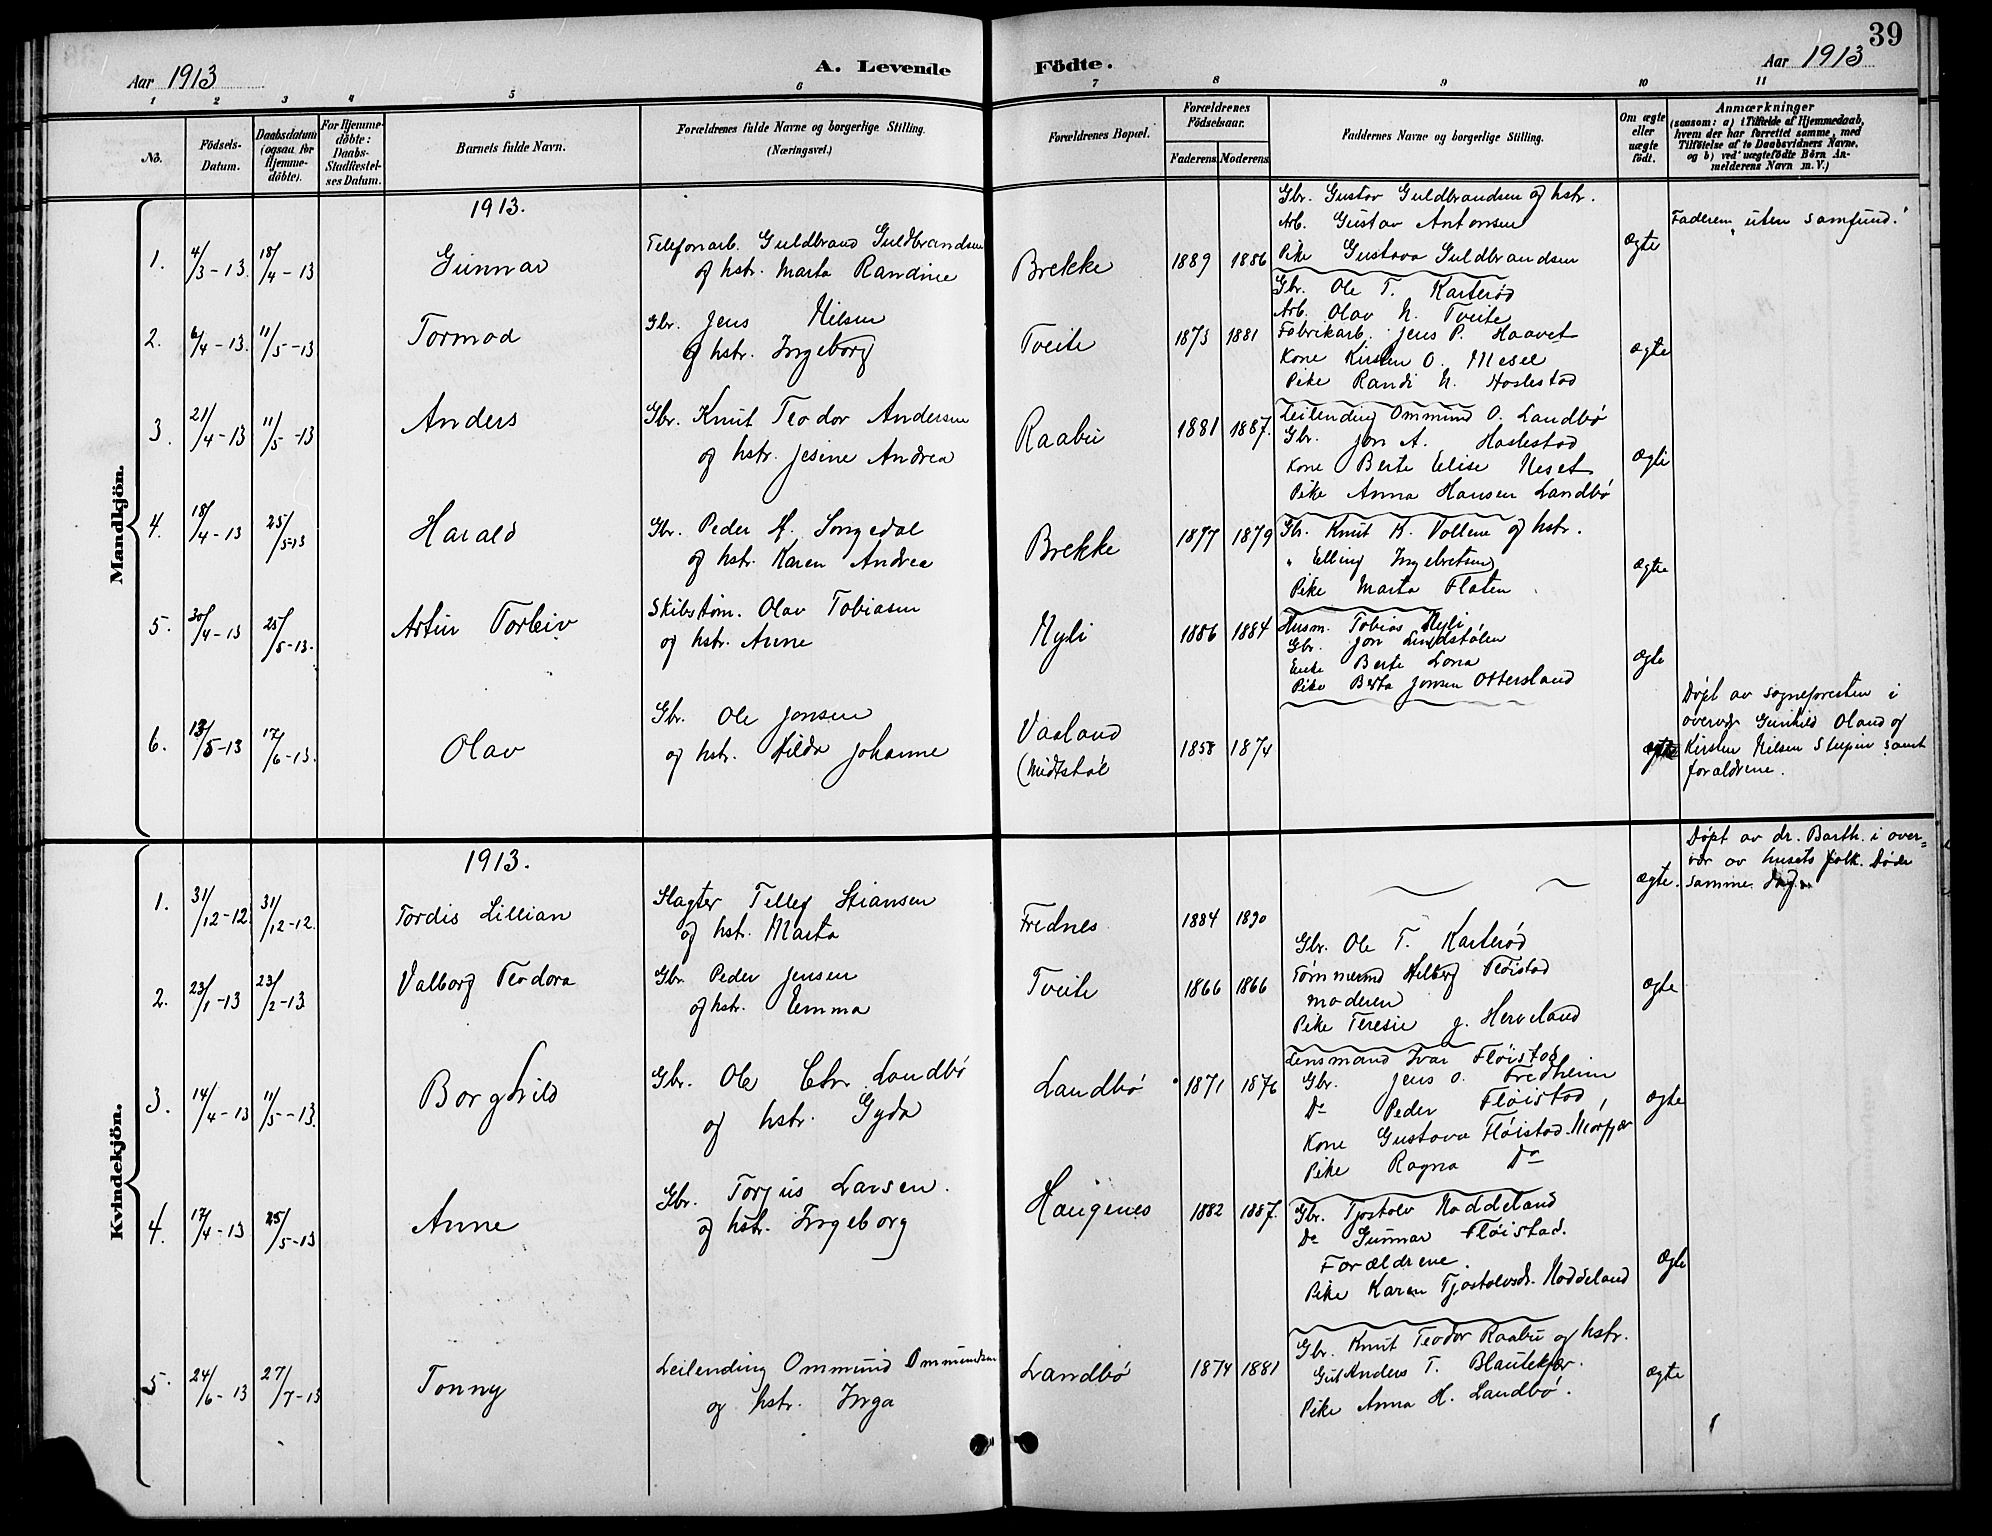 39
Aar 1913
A. Levende Födte.
Aar 1913
1 2 3 4 5 6 7 8 9 10 11
No.
Födsels-Datum.
Daabsdatum (ogsaa for Hjemme-döbte).
For Hjemme-döbte: Daabs-Stadfæstel-ses Datum.
Barnets fulde Navn.
Forældrenes fulde Navne og borgerlige Stilling. (Næringsvei.)
Forældrenes Bopæl.
Forældrenes Födselsaar.
Faderens. Moderens.
Faddernes Navne og borgerlige Stilling.
Om ægte eller uægte födt.
Anmærkninger
(saasom: a) i Tilfælde af Hjemmedaab,
hvem der har forrettet samme, med
Tilföielse af to Daabsvidners Navne,
og b) ved uægtefödte Börn An-
melderens Navn m. V.)
Mandkjön.
1913.
1. 4/3-13. 18/4-13 Gunnar
Telefonarb. Guldbrand Guldbrandsen
og hstr. Marta Randine
Brekke 1889 1886
Gbr. Gustav Guldbrandsen og hstr.
Arb. Gustav Antonsen
Pike Gustava Guldbrandsen
Ægte
Faderen uten samfund.
2. 6/4-13. 11/5-13 Tormod
Gbr. Jens Nilsen
og hstr. Ingeborg
Tveite 1873 1881
Gbr. Ole T. Karterød
Arb. Olav N. Tveite
Fabrikarb. Jens P. Haavet
Kone Kirsten O. Mesel
Pike Randi N. Haslestad
ægte
3. 21/4-13 11/5-13 Anders
Gbr. Knut Teodor Andersen
og hstr. Jesine Andrea
Raabu 1881 1887.
Leilending Ommund O. Landbø
Gbr. Jon A. Haslestad
Kone Berte Elise Neset
Pike Anna Hansen Landbø
Ægte
4. 18/4-13 25/5-13 Harald
Gbr. Peder H. Songedal
og hstr. Karen Andrea
Brekke 1877 1879
Gbr. Knut K. Vollene og hstr.
" Elling Ingebretsen
Pike Marta Flaten
Ægte
5. 30/4-13 25/5-13. Artur Torleiv
Skibstøm. Olav Tobiasen
og hstr. Anne
Nyli 1886 1884
Husm. Tobias Nyli
Gbr. Jon Lindstølen
Enke Berte Lona
Pike Berta Jonsen Ottersland
Ægte
6. 13/5-13 17/6-13. Olav
Gbr. Ole Jonsen
og hstr. Hilda Johanne
Vaaland
(Midtstøl
1858 1874
ægte
Døpt av sognepresten i
overv. Gunhild Oland og
Kirsten Nilsen Stupin samt
forældrene.
Kvindekjön.
1913.
1. 31/12-12. 31/12-12. Tordis Lillian
Slagter Tellef Stiansen
og hstr. Marta
Frednes 1884 1890
ægte.
Døpt av dr. Barth. i over=
vær av husets folk. Døde
samme dag.
2. 23/1-13 23/2-13 Valborg Teodora
Gbr. Peder Jensen
og hstr. Emma
Tveite 1866 1866
Gbr. Ole T. Karterød
Tømmermd Hilberg Fløistad
moderen
Pike Teresie J. Herveland
ægte
3. 14/4-13 11/5-13. Borghild
Gbr. Ole Chr. Landbø
og hstr. Gyda
Landbø 1871 1876
Lensmand Ivar Fløistad
Gbr. Jens O. Fredheim
Do Peder Fløistad,
Kone Gustava Fløistad Mörfjær
Pike Ragna Do
ægte
4. 17/4-13 25/5-13 Anne
Gbr. Torjus Larsen.
og hstr. Ingeborg
Haugenes 1882 1887.
Gbr. Tjostolv Noddeland
Do Gunnar Fløistad.
Forældrene.
Pike Karen Tjostolvsdr. Noddeland
Ægte
5. 24/6-13 27/7-13 Tonny
Leilending Ommund Ommundsen
og hstr. Inga
Landbø 1874 1881
Gbr. Knut Teodor Raabu og hstr.
Gut Anders T. Blautekjær.
Pike Anna H. Landbø.
ægte